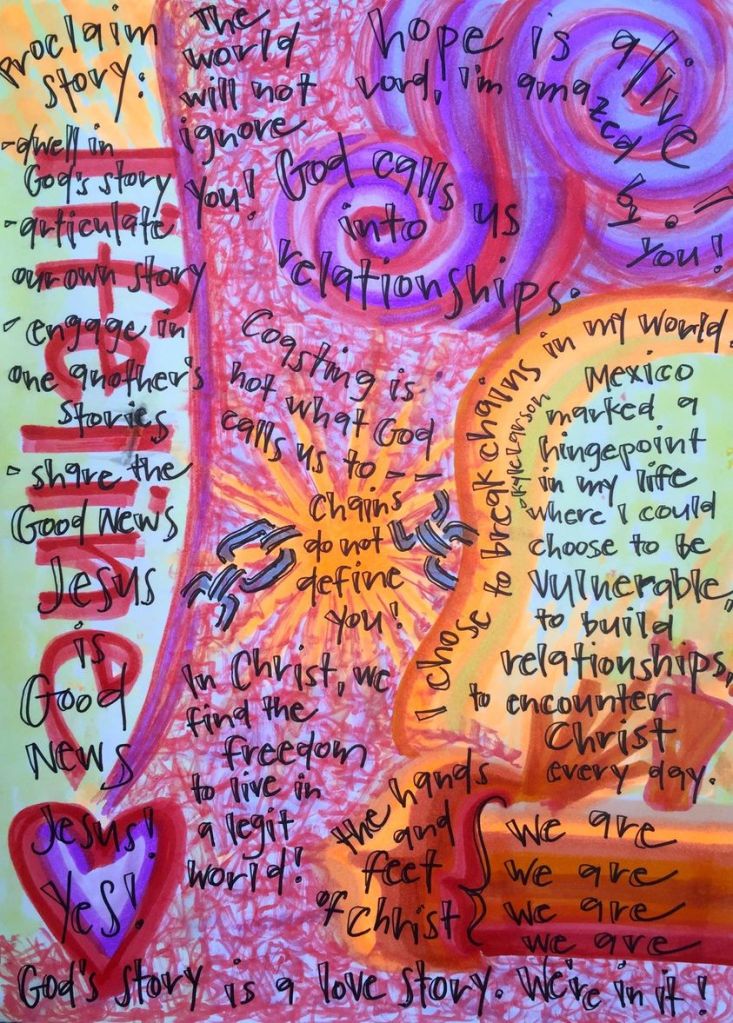 Proclaim
story:
- dwell in
God's story
- articulate
our own story
- engage in
one another's
stories
- share the
Good News
Jesus
is
Good
News
Jesus!
Yes!
lifeline
The
world
will not
ignore
you!
hope is alive
Lord, i'm amazed
by
you!
God calls
us
into
relationships.
Coasting is
not what God
calls us to --
Chains
do not
define
you!
I chose to break chains in my world.
Kyle Larson
Mexico
marked a
hingepoint
in my life
where I could
choose to be
vulnerable,
to build
relationships,
to encounter
Christ
every day.
In Christ, we
find the
freedom
to live in
a legit
world!
the hands
and
feet
of Christ
we are
we are
we are
we are
God's story is a love story. We're in it!